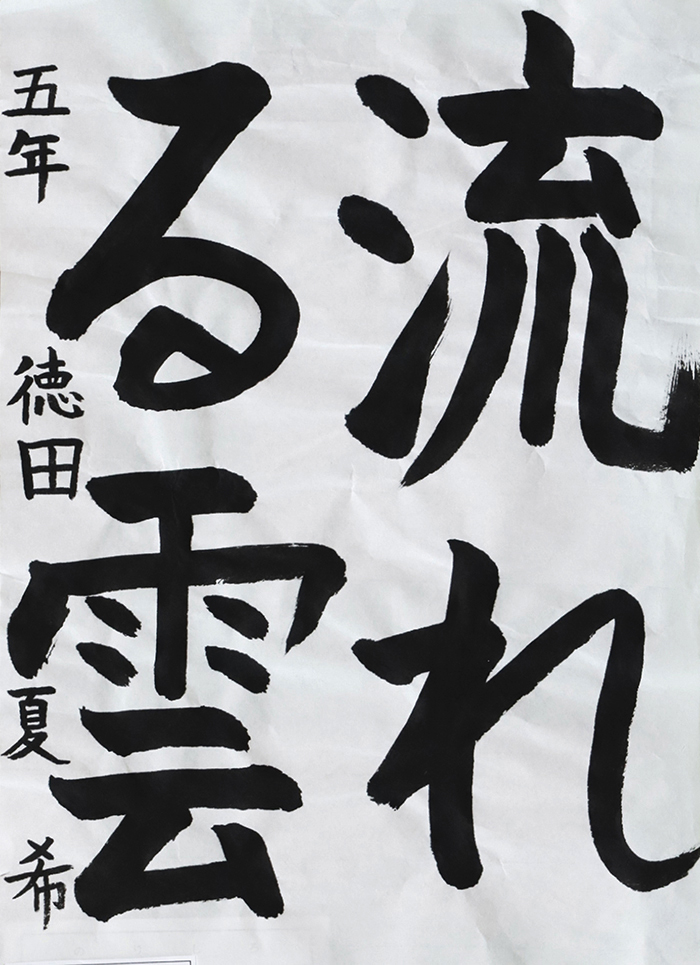 流れ
る雲
五年 徳田 夏希